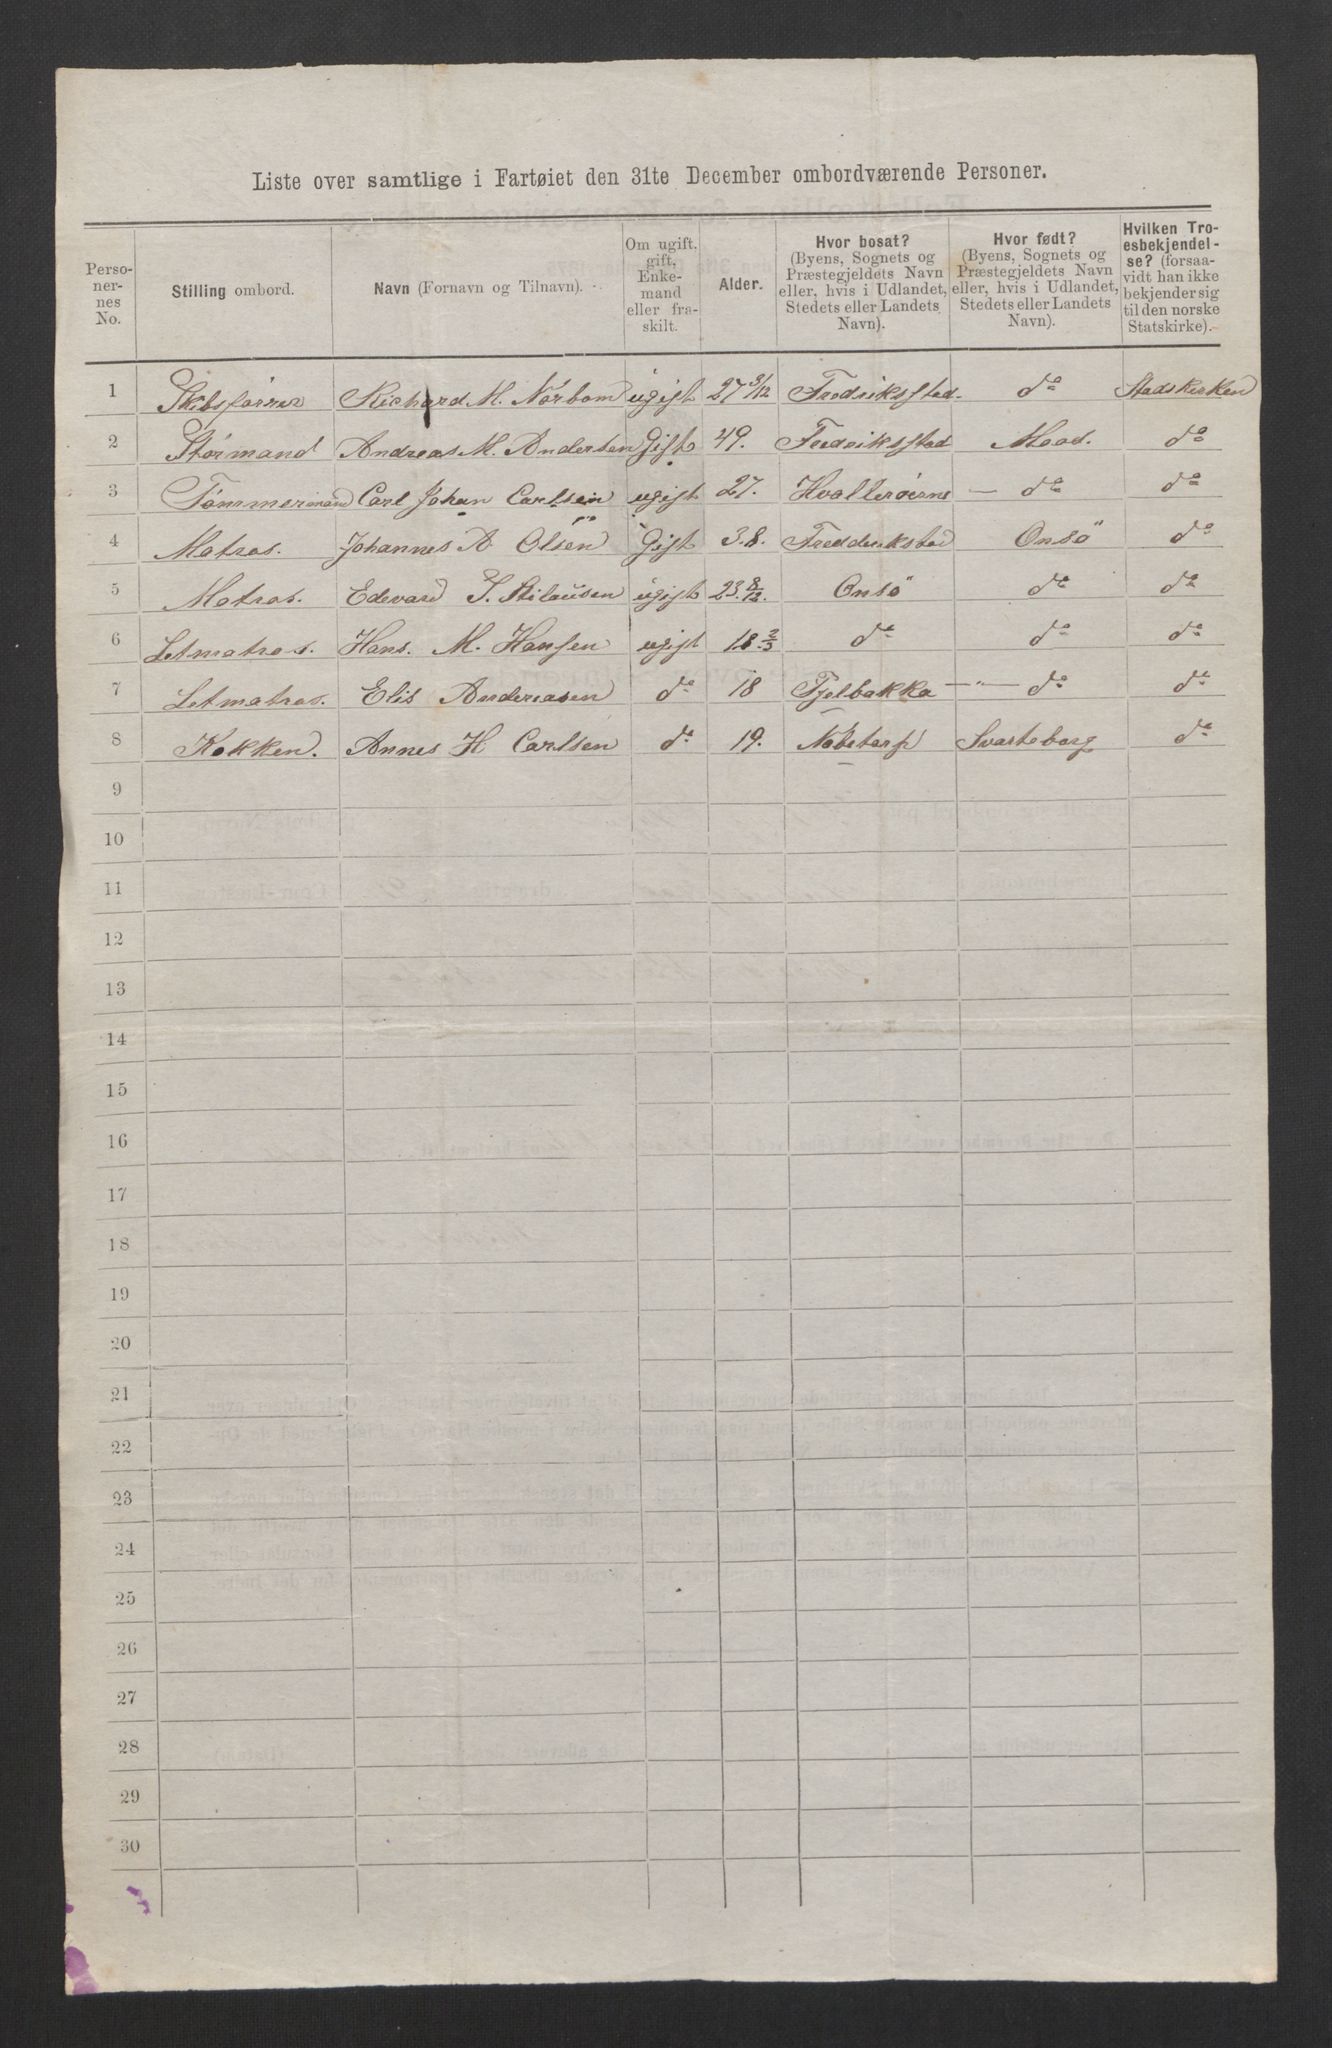 Liste over samtlige i Fartøiet den 31te December ombordværende Personer.
Perso-
ner-
nes
No.
Stilling ombord.
Navn (Fornavn og Tilnavn).
Om ugift,
gift,
Enke-
mand
eller fra-
skilt.
Alder.
Hvor bosat?
(Byens, Sognets og
Præstegjeldets Navn
eller, hvis i Udlandet,
Stedets eller Landets
Navn).
Hvor født?
(Byens, Sognets og
Præstegjeldets Navn
eller, hvis i Udlandet,
Stedets eller Landets
Navn).
Hvilken Tro-
esbekjendel-
se? (forsaa-
vidt han ikke
bekjender sig
til den norske
Statskirke).
1 Skibsförrer Richard M. Nörbom ugift 27 3/12 Fredriksstad. do Stadskirken
2 Störmand Andreas M. Andersen Gift 49. Fredriksstad Moss. do
3 Tømmermand Carl Johan Carlsen ugift 27. Hvalleröerne — do do
4 Matros. Johannes A Olsen Gift 38. Fredderikstad Onsö do
5 Matros. Edevard S. ugift 23. 8/12. Onsö do do
6 Letmatros. Hans. M. Hansen ugift 18. 2/3 do do do
7 Letmatros. Elis Andreasen do 18 Fjelbakka —"— do do
8 Kokken. Annes H Carlsen do 19. Svarteborg do
9
10
11
12
13
14
15
16
17
18
19
20
21
22
23
24
25
26
27
28
29
30